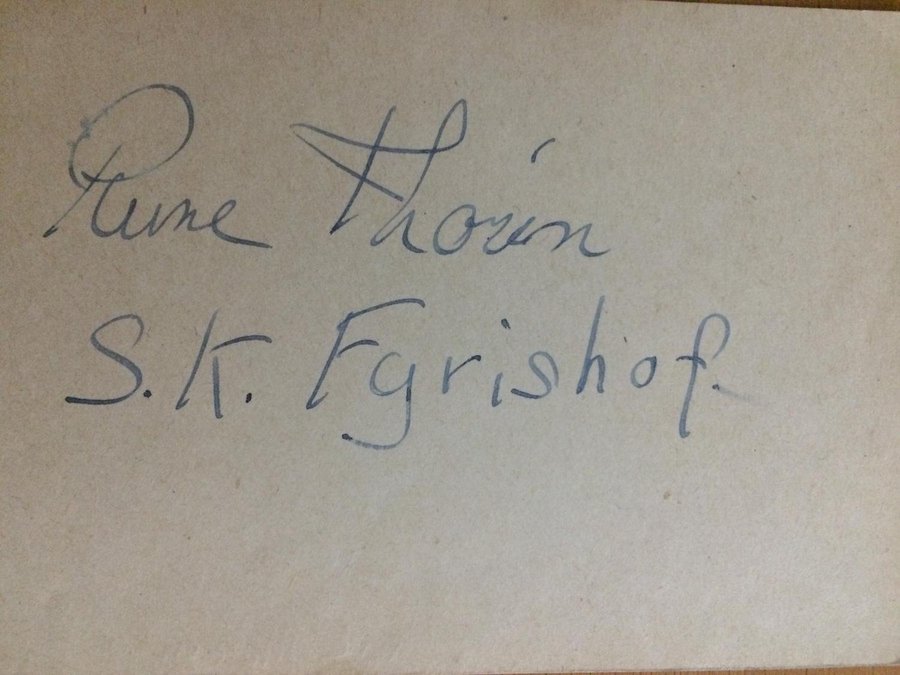 Rune Thorén
S.K. Fyrishof.